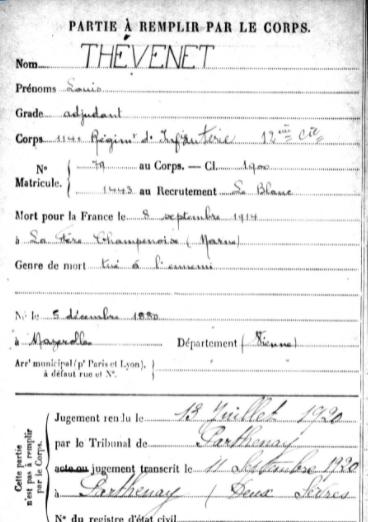 PARTIE À REMPLIR PAR LE CORPS.
Nom THÉVENET
Prénoms Louis
Grade adjudant
Corps 114e Régimt d'Infanterie 12eme Cie
N° 79 au Corps. — Cl. 1900
Matricule. 1443 au Recrutement Le Blanc
Mort pour la France le 8 septembre 1914
à La Fère Champenoise (Marne)
Genre de mort tué à l'ennemi
Né le 5 décembre 1880
à Mazerolles Département (Vienne)
Arrt municipal (pr Paris et Lyon),
à défaut rue et N°.
Cette partie
n'est pas à remplir
par le Corps.
Jugement rendu le 13 Juillet 1920
par le Tribunal de Parthenay
acte ou jugement transcrit le 11 Septembre 1920
à Parthenay (Deux Sèvres
N° du registre d'état civil